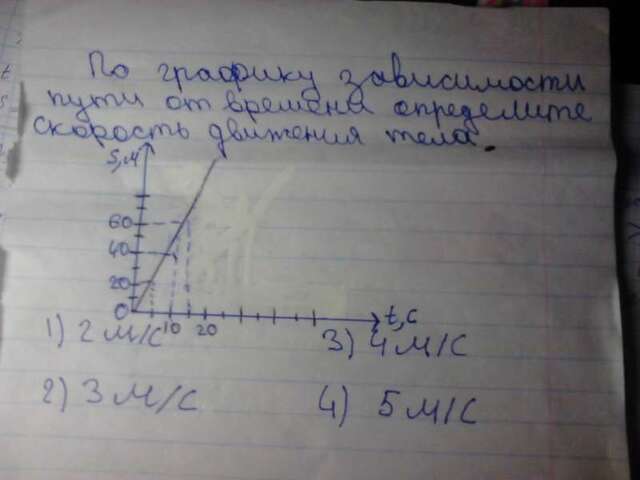 По графику зависимости
пути от времени определите
скорость движения тела.
S,м
60
40
20
0
10 20 t,с
1) 2 м/с 3) 4 м/с
2) 3 м/с 4) 5 м/с